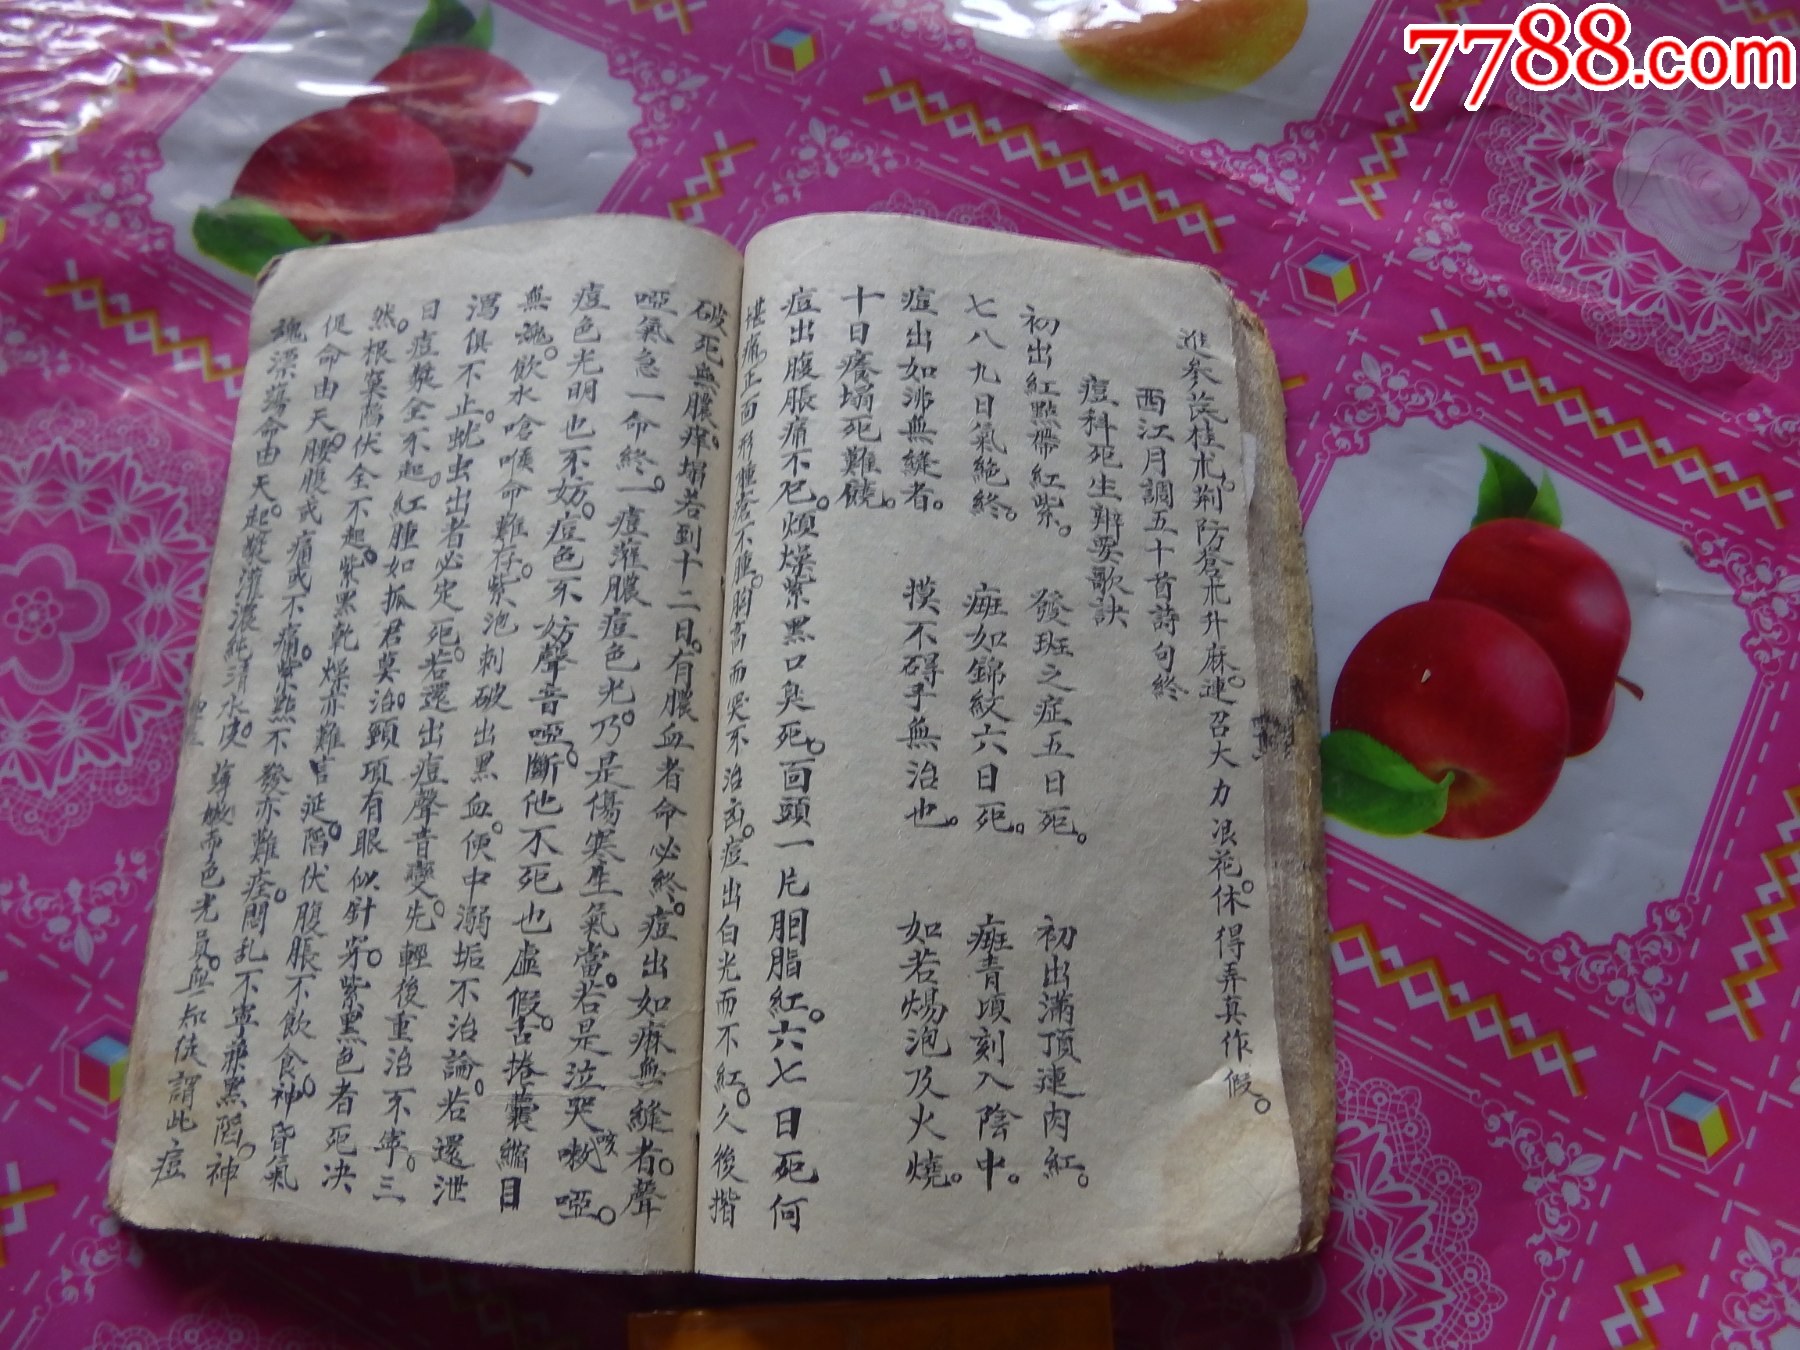 7788.com
進参芪桂朮荆防蒼朮升麻連召大力浪花休得弄真作假
西江月調五十首詩句終
痘科死生辨要歌訣
初出紅點帶紅紫 發班之症五日死 初出滿頂連肉紅
七八九日氣絕終 癍如錦紋六日死 癍青頃刻入陰中
痘出如沙無縫者 摸不碍手無治也 如若煬泡及火燒
十日癢塌死難饒
痘出腹脹痛不已煩燥紫黑口臭死面頭一片胭脂紅六七日死何
堪痛正面形腫瘡不腫胸高而哭不治出痘出白光而不紅久後揩
破死無膿痒塌若到十二日有膿血者命必終痘出如麻無縫者聲
啞氣急一命終一痘灌膿痘色光乃是傷寒生氣當若是泣哭嗽咳啞
痘色光明也不妨痘色不妨聲音啞斷他不死也虛假舌捲囊縮目
無魂飲水嗆喉命難存紫泡刺破出黑血便中溺垢不治論若還泄
瀉俱不止虵虫出者必定死若還出痘聲音變先輕後重治不寧三
日痘漿全不起紅腫如孤君莫治頸項有眼似針穿紫黑色者死决
然根窠陷伏全不起紫黑乾燥亦難言延陷伏腹脹不飲食神昏氣
促命由天腰腹或痛或不痛紫點不發亦難痊悶乱不寧兼黑陷神
魂漂蕩命由天起漿灌濃純清水皮薄嫩而色光員無知徒謂此痘